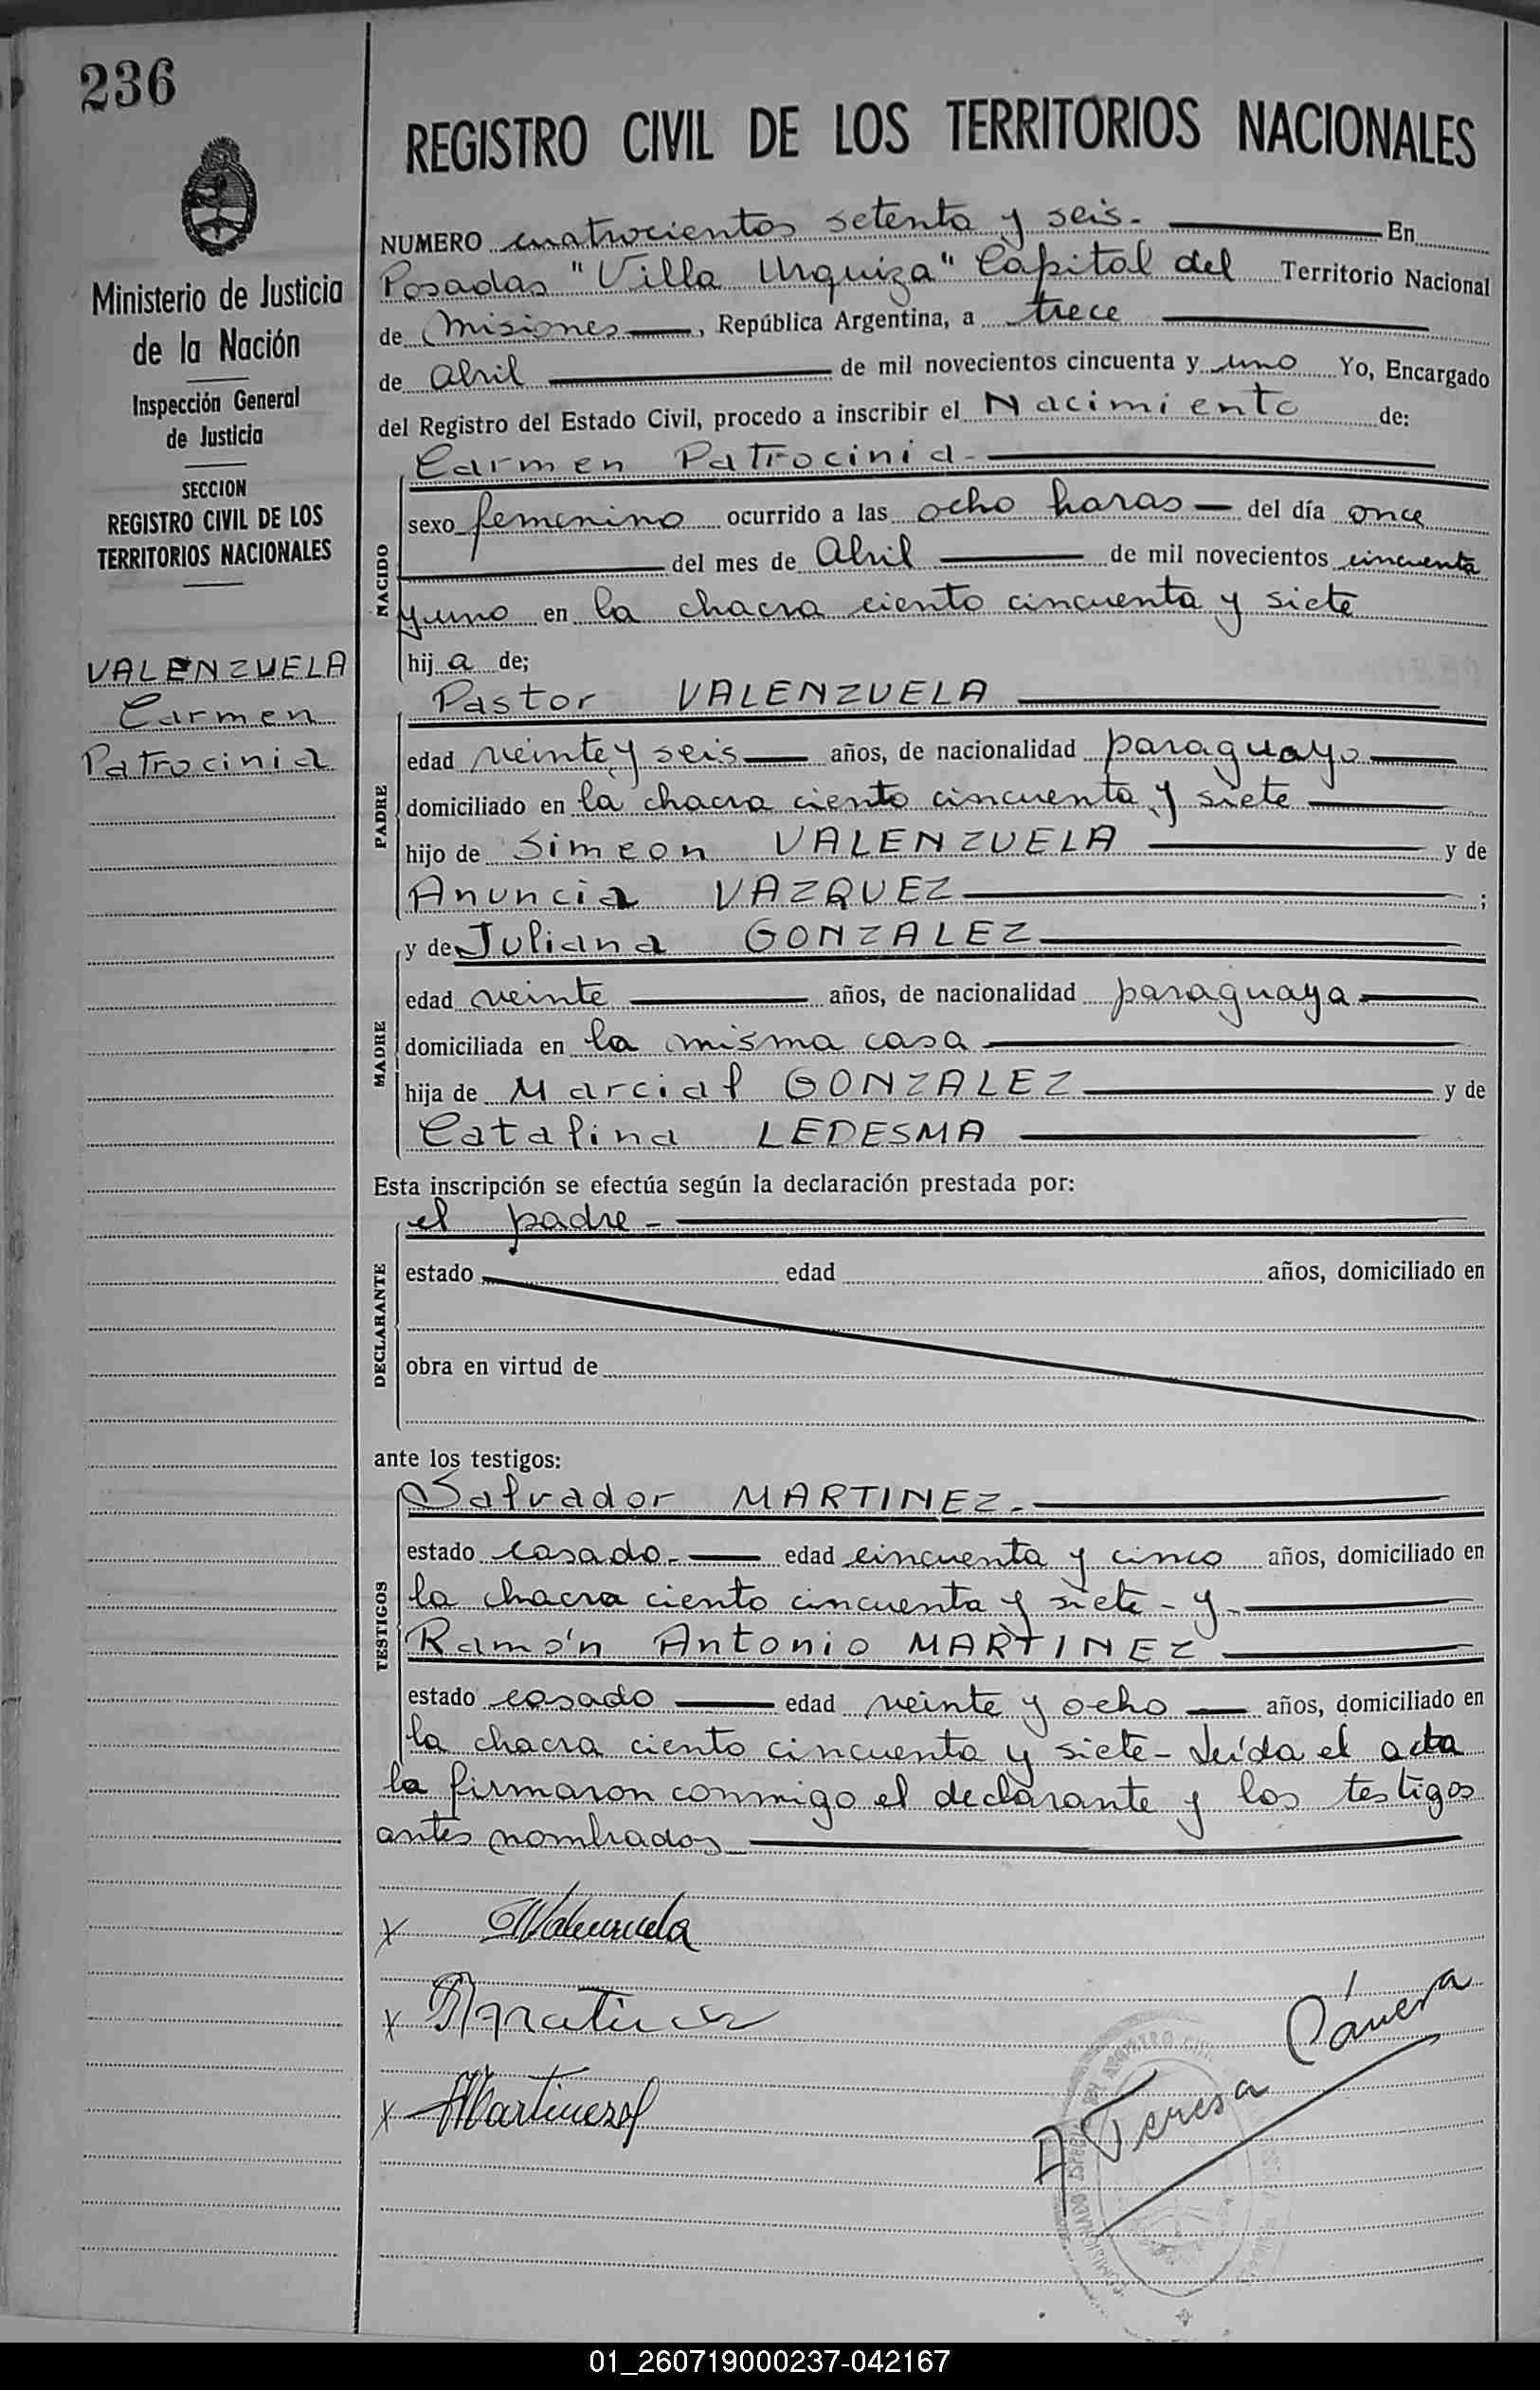 236
REGISTRO CIVIL DE LOS TERRITORIOS NACIONALES
Ministerio de Justicia
de la Nación
Inspección General
de Justicia
SECCION
REGISTRO CIVIL DE LOS
TERRITORIOS NACIONALES
VALENZUELA
Carmen
Patrocinia
NUMERO cuatrocientos setenta y seis.- En
Posadas "Villa Urquiza" Capital del Territorio Nacional
de Misiones, República Argentina, a trece
de Abril de mil novecientos cincuenta y uno Yo, Encargado
del Registro del Estado Civil, procedo a inscribir el Nacimiento de:
Carmen Patrocinia-
NACIDO
sexo femenino ocurrido a las ocho horas - del día once
del mes de Abril de mil novecientos cincuenta
y uno en la chacra ciento cincuenta y siete
hij a de;
Pastor VALENZUELA
PADRE
edad veinte y seis años, de nacionalidad paraguayo
domiciliado en la chacra ciento cincuenta y siete
hijo de Simeon VALENZUELA y de
Anuncia VAZQUEZ ;
y de Juliana GONZALEZ
MADRE
edad veinte años, de nacionalidad paraguaya
domiciliada en la misma casa
hija de Marcial GONZALEZ y de
Catalina LEDESMA
Esta inscripción se efectúa según la declaración prestada por:
el padre -
DECLARANTE
estado edad años, domiciliado en
obra en virtud de
ante los testigos:
Salvador MARTINEZ.-
TESTIGOS
estado casado.- edad cincuenta y cinco años, domiciliado en
la chacra ciento cincuenta y siete - y
Ramón Antonio MARTINEZ
estado casado edad veinte y ocho años, domiciliado en
la chacra ciento cincuenta y siete - Leída el acta
la firmaron conmigo el declarante y los testigos
antes nombrados
x Valenzuela
x
x
A Teresa Cánera
01_260719000237-042167